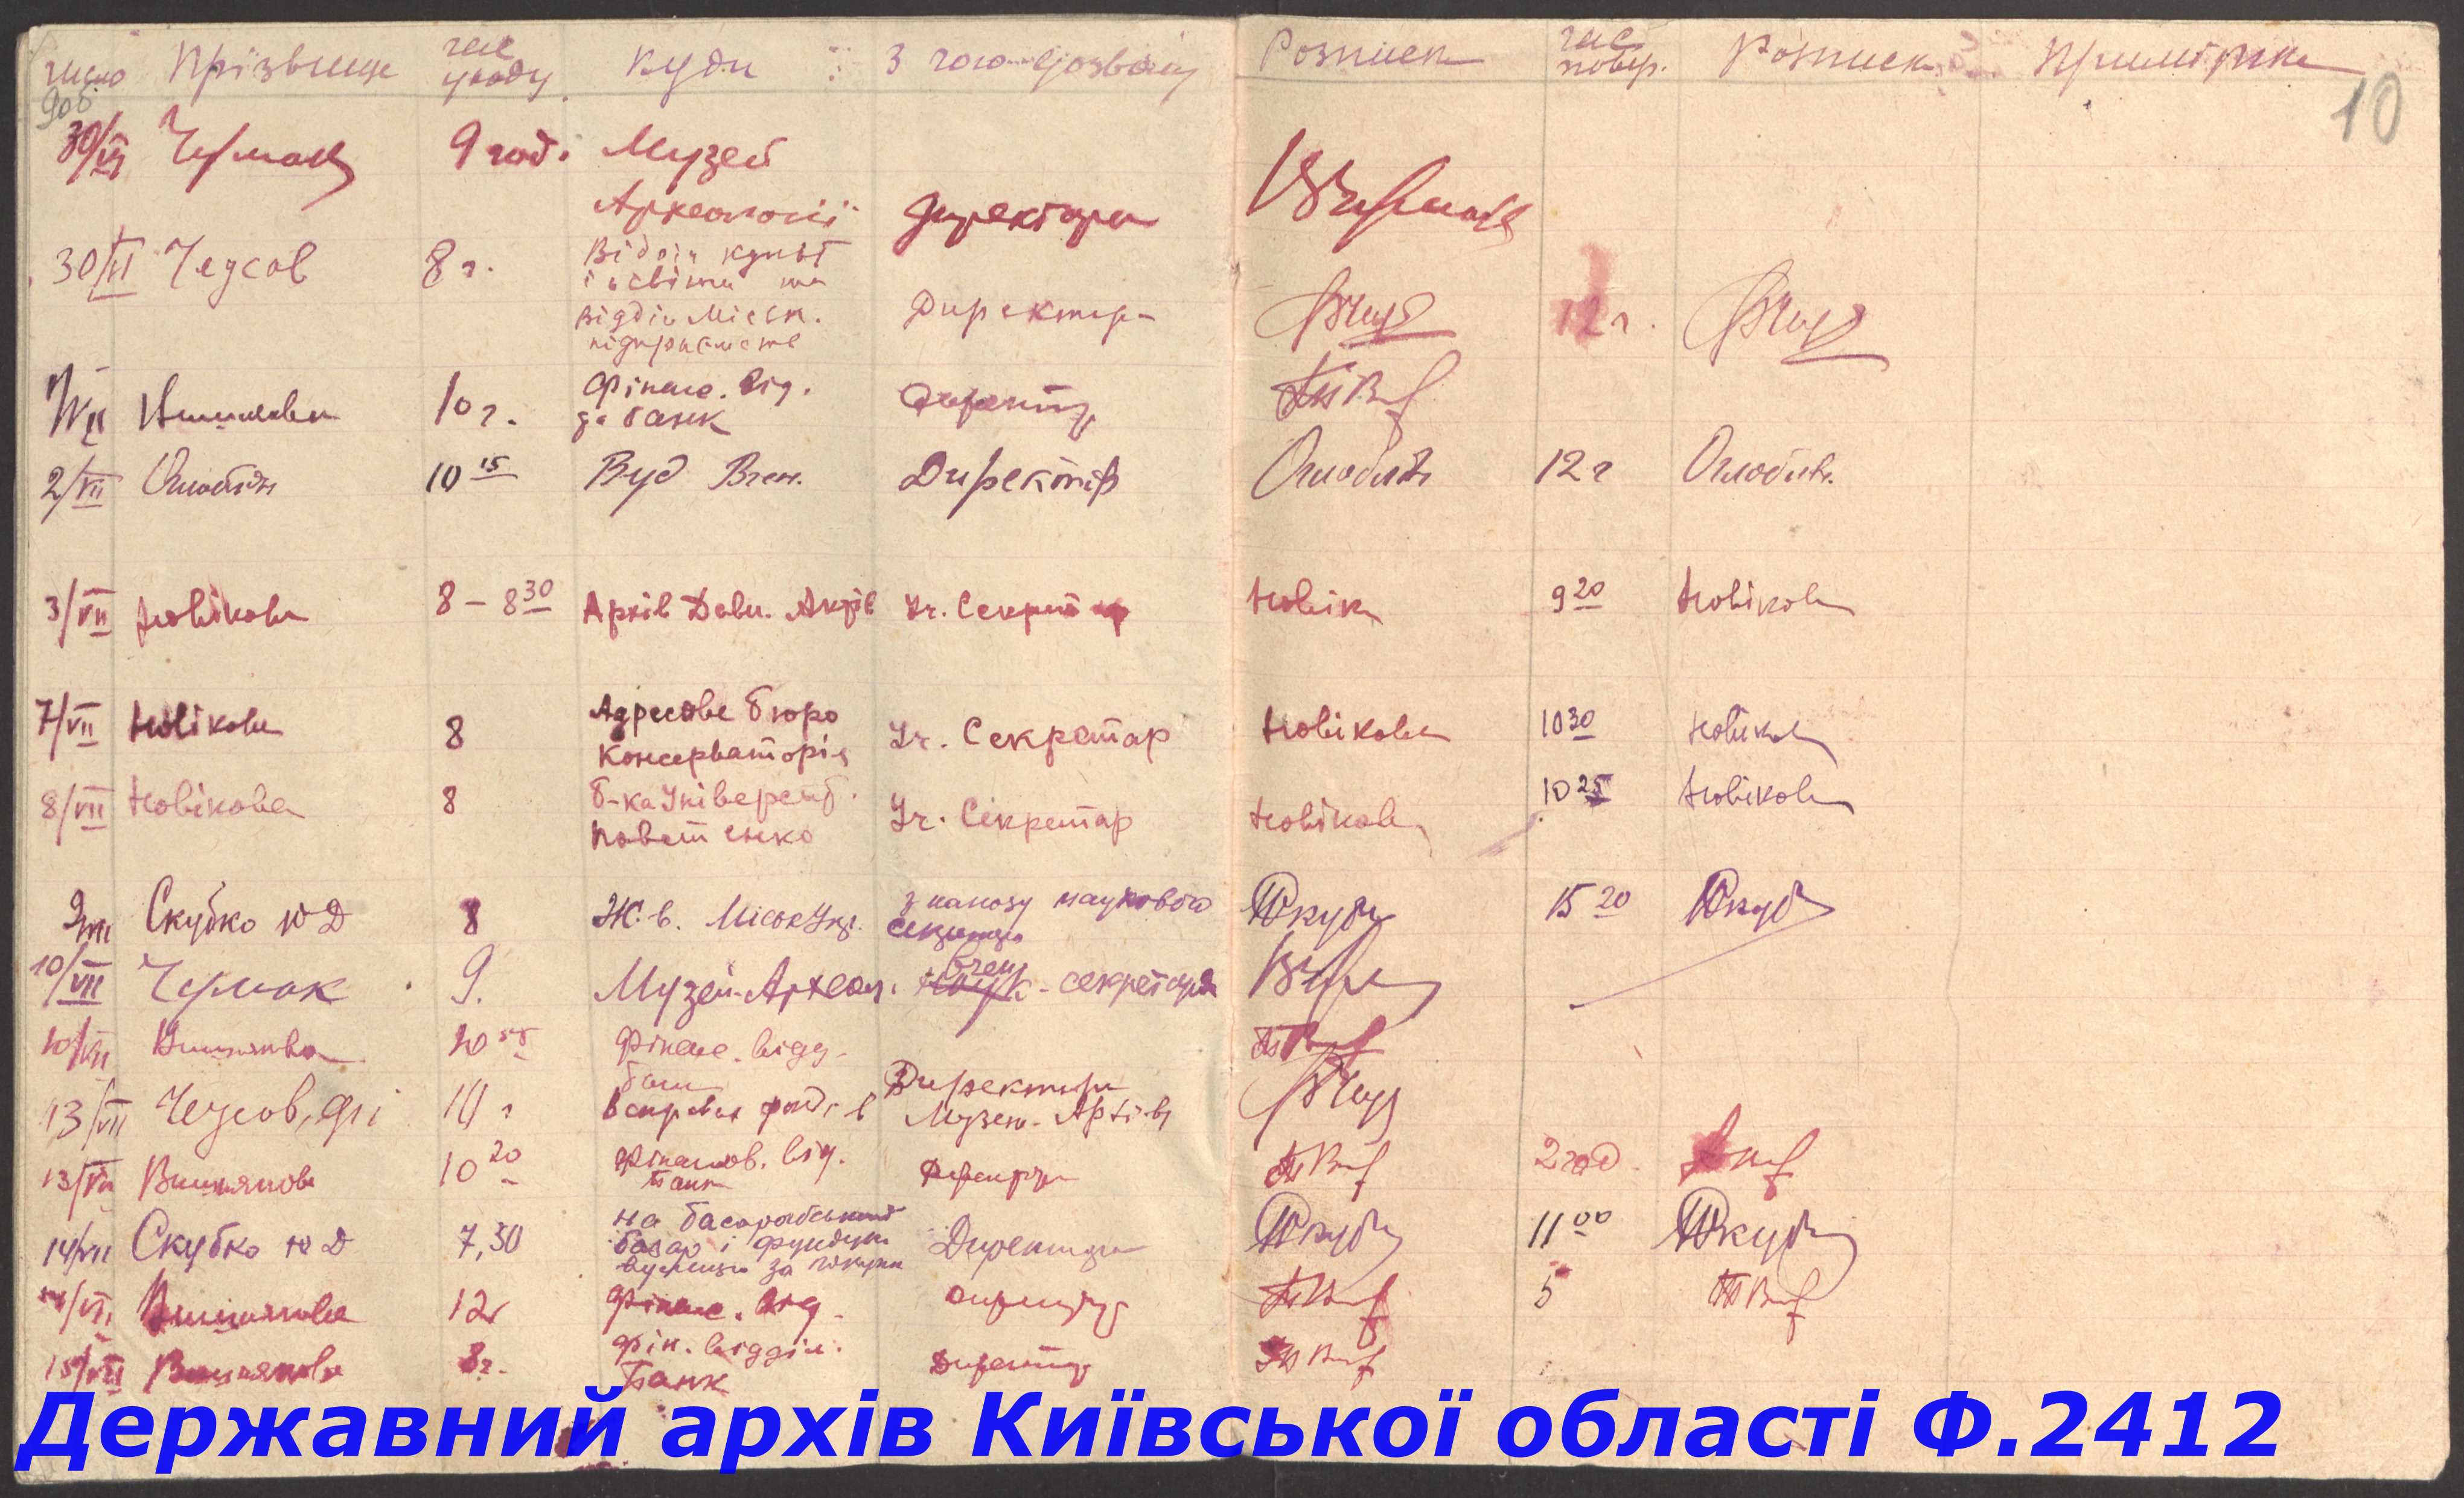 число Прізвище час уходу куди З чого дозволу Розписка час повер. Розписка Примітка
10
30/VI Чермак 9 год. Музей
Археології Директора
30/VI Чеусов 8 г. Відділ культ
і освіти та
відділ Міськ. Директора 12 г.
підприємств
1/VII Вишнякова 10 г. Фінанс. від.
да банк
2/VII Оглоблін 10 15 Буд Вчен. Директор Оглоблін 12 г Оглоблін
3/VII Новікова 8 - 8 30 Архів Давн. Актів Уч. Секретар Новік 9 20 Новікова
7/VII Новікова 8 Адресове бюро
Консерваторія Уч. Секретар Новікова 10 30 Новікова
8/VII Новікова 8 б-ка Університ.
Уч. Секретар Новікова 10 25 Новікова
9/VII Скубко Ю Д 8 Ж. в. Міськ Упр. з наказу наукового
секретаря 15 20
10/VII Чермак 9. Музей-Археол. вчен. секретаря
10/VII Вишнякова 10 55 Фінанс. відд.
банк
13/VII Чеусов, 10 г в справах фонд. в Директора
Музею-Архів
13/VII Вишнякова 10 20 Фінансов. від. 2 год.
Банк
14/VII Скубко Ю Д 7,30 на басарабський
базар і Фундукл. Директора 11 00
вулицю за
14/VII Вишнякова 12 г Фінанс. від. 5
15/VII Вишнякова 8 г. Фін. відділ.
Банк
Державний архів Київської області Ф.2412